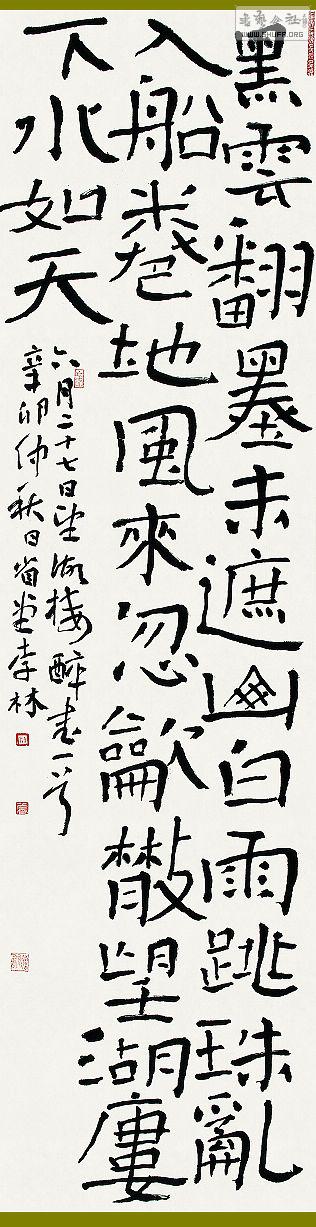 黑雲翻墨未遮山白雨跳珠亂
入船卷地風來忽龡散望湖廔
下水如天
六月二十七日望湖樓醉書一首
辛卯仲秋日省堂李林
书艺公社
WWW.SHUFA.ORG